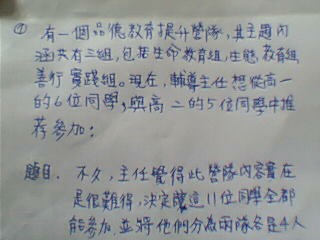 ① 有一個品德教育提升營隊,其主題內
涵共有三組,包括生命教育組,生態教育組,
善行實踐組。現在,輔導主任想從高一
的6位同學,與高二的5位同學中推
荐參加:
題目. 不久,主任覺得此營隊內容實在
是很難得,決定讓這11位同學全部
能參加,並將他們分為兩隊各是4人